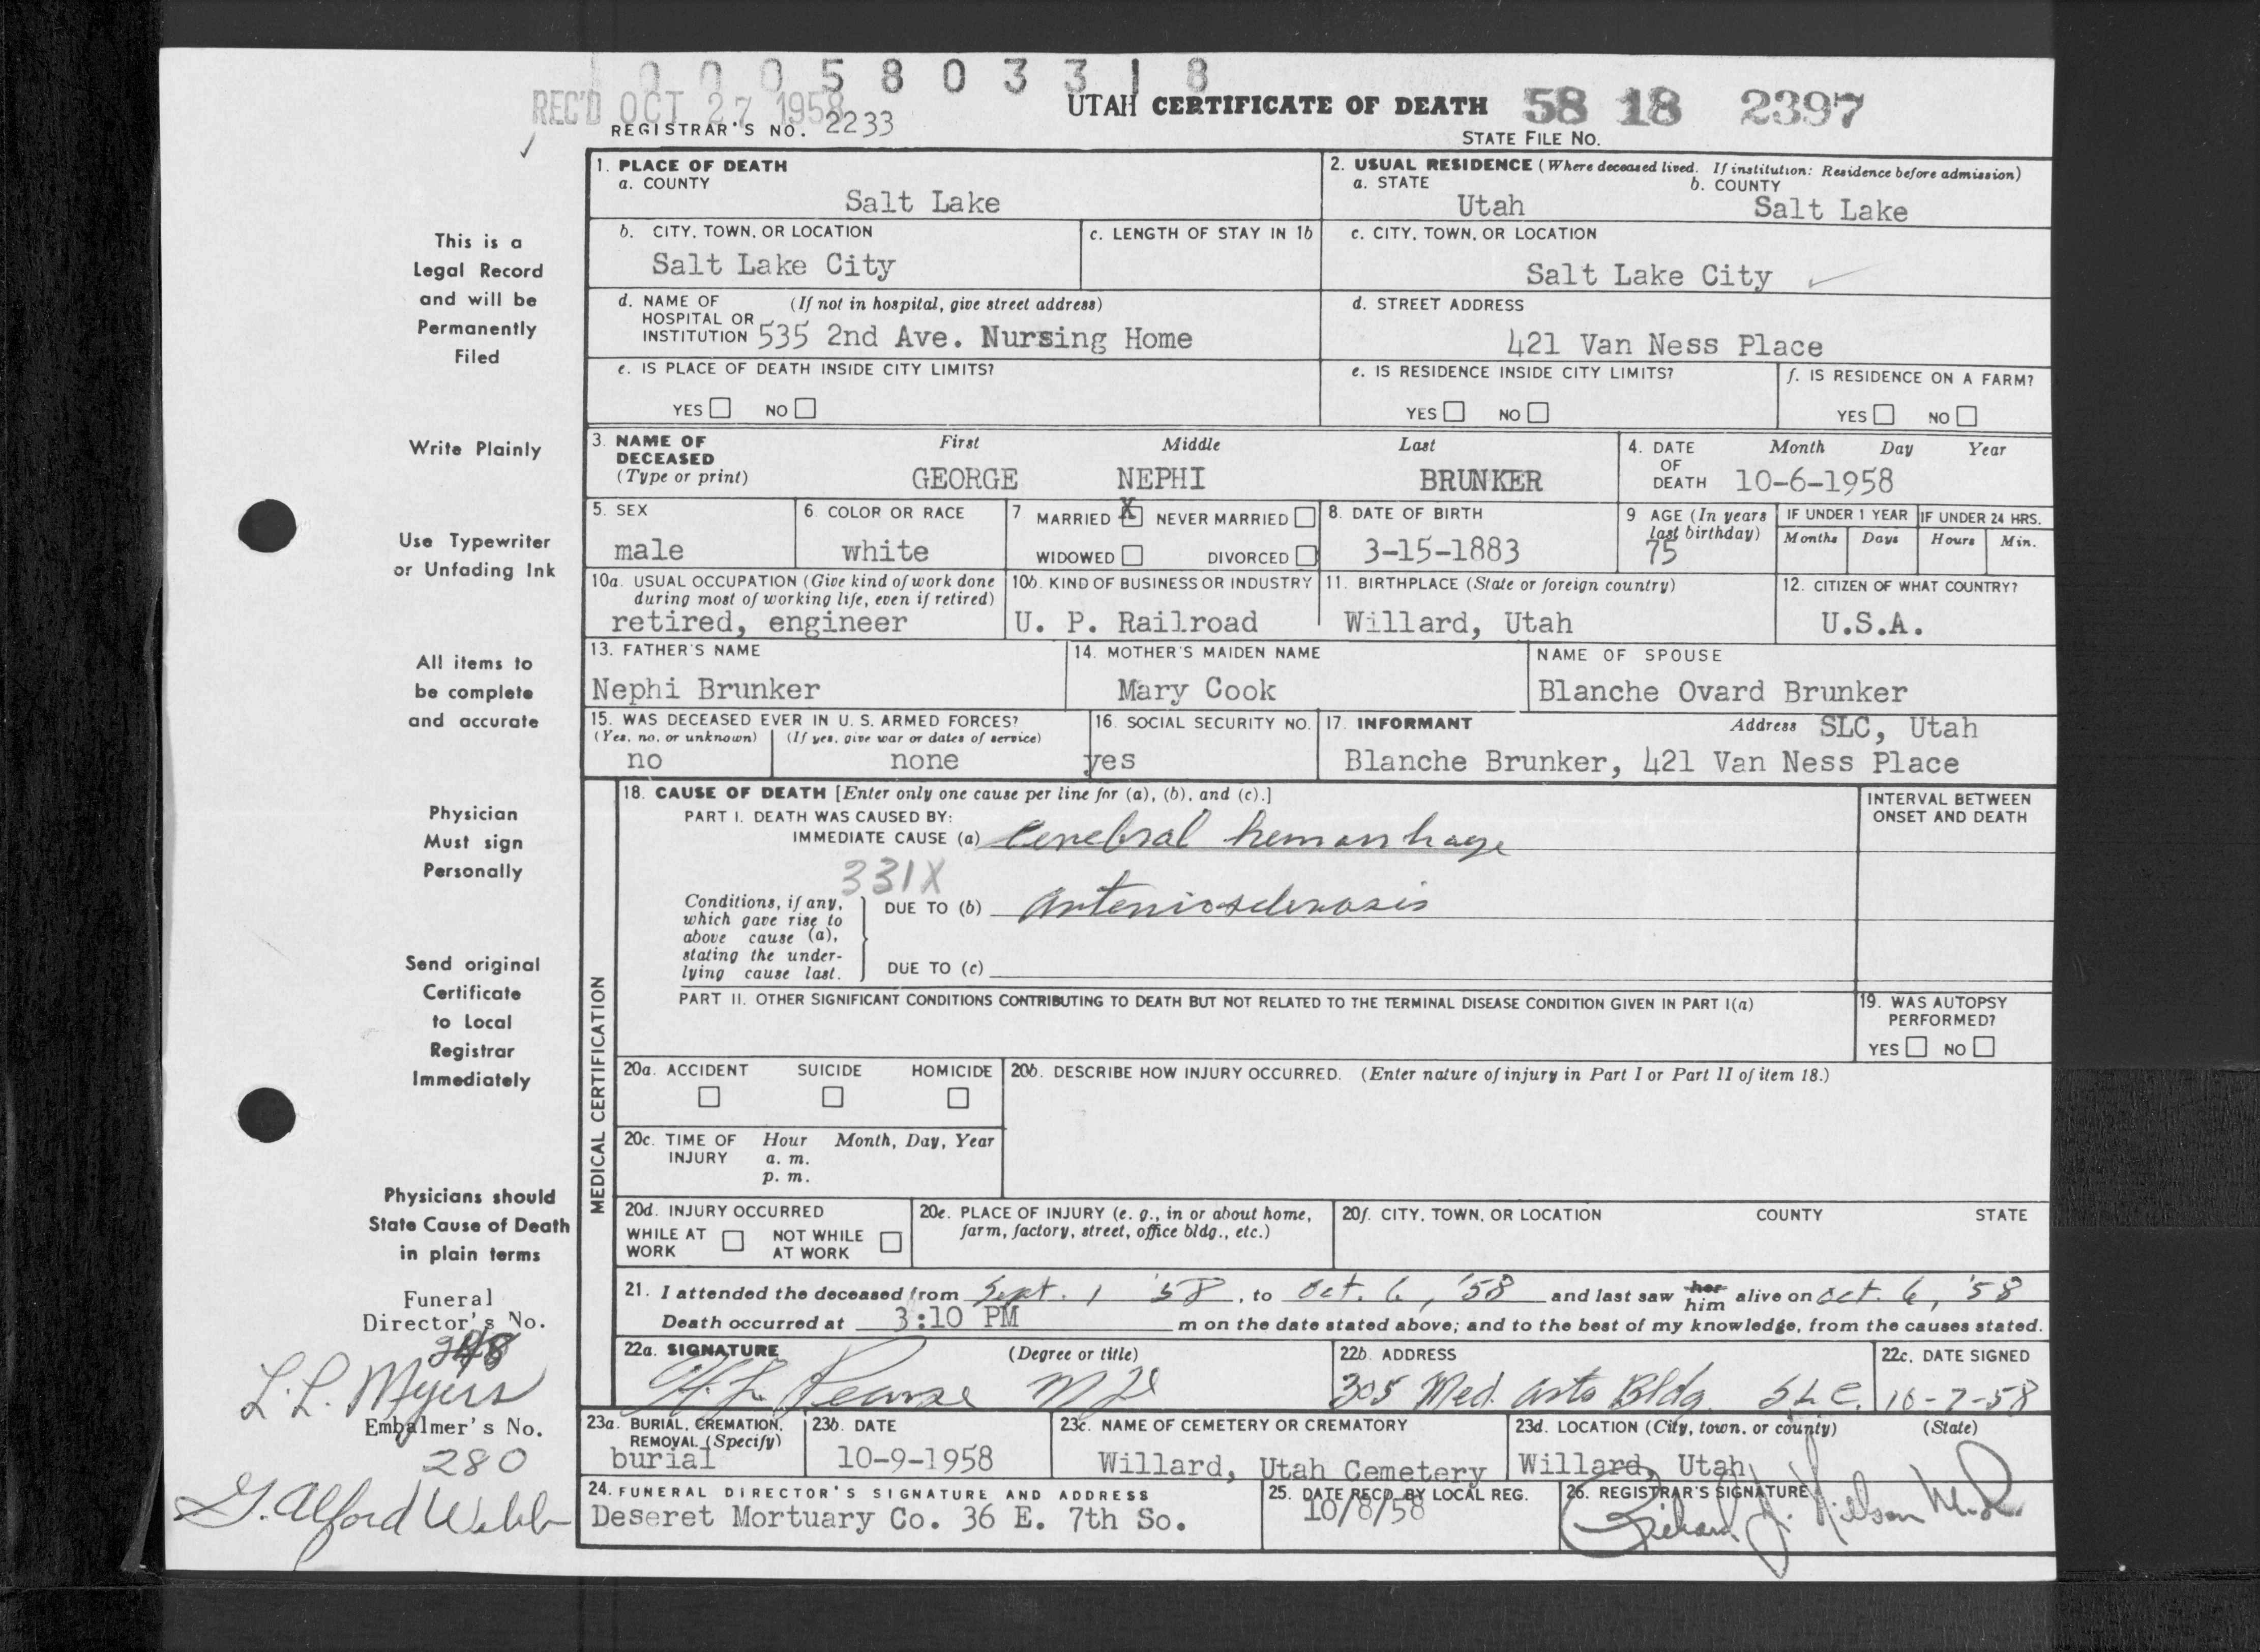 0 0 0 5 8 0 3 3 1 8
REC'D OCT 27 1958
UTAH CERTIFICATE OF DEATH 58 18 2397
REGISTRAR'S NO. 2233
STATE FILE NO.
1. PLACE OF DEATH
a. COUNTY
Salt Lake
2. USUAL RESIDENCE (Where deceased lived. If institution: Residence before admission)
a. STATE b. COUNTY
Utah Salt Lake
b. CITY, TOWN, OR LOCATION
Salt Lake City
c. LENGTH OF STAY IN 1b
c. CITY, TOWN, OR LOCATION
Salt Lake City
d. NAME OF (If not in hospital, give street address)
HOSPITAL OR
INSTITUTION 535 2nd Ave. Nursing Home
d. STREET ADDRESS
421 Van Ness Place
e. IS PLACE OF DEATH INSIDE CITY LIMITS?
YES NO
e. IS RESIDENCE INSIDE CITY LIMITS?
YES NO
f. IS RESIDENCE ON A FARM?
YES NO
3. NAME OF DECEASED (Type or print)
First Middle Last
GEORGE NEPHI BRUNKER
4. DATE OF DEATH
Month Day Year
10-6-1958
5. SEX
male
6 COLOR OR RACE
white
7 MARRIED X NEVER MARRIED
WIDOWED DIVORCED
8. DATE OF BIRTH
3-15-1883
9 AGE (In years last birthday)
75
IF UNDER 1 YEAR
Months Days
IF UNDER 24 HRS.
Hours Min.
10a. USUAL OCCUPATION (Give kind of work done
during most of working life, even if retired)
retired, engineer
10b. KIND OF BUSINESS OR INDUSTRY
U. P. Railroad
11. BIRTHPLACE (State or foreign country)
Willard, Utah
12. CITIZEN OF WHAT COUNTRY?
U.S.A.
13. FATHER'S NAME
Nephi Brunker
14. MOTHER'S MAIDEN NAME
Mary Cook
NAME OF SPOUSE
Blanche Ovard Brunker
15. WAS DECEASED EVER IN U. S. ARMED FORCES?
(Yes, no, or unknown) (If yes, give war or dates of service)
no none
16. SOCIAL SECURITY NO.
yes
17. INFORMANT Address SLC, Utah
Blanche Brunker, 421 Van Ness Place
MEDICAL CERTIFICATION
18. CAUSE OF DEATH [Enter only one cause per line for (a), (b), and (c).]
PART I. DEATH WAS CAUSED BY:
IMMEDIATE CAUSE (a) Cerebral hemorrhage
331X
Conditions, if any,
which gave rise to
above cause (a),
stating the under-
lying cause last.
DUE TO (b) Arteriosclerosis
DUE TO (c)
INTERVAL BETWEEN
ONSET AND DEATH
PART II. OTHER SIGNIFICANT CONDITIONS CONTRIBUTING TO DEATH BUT NOT RELATED TO THE TERMINAL DISEASE CONDITION GIVEN IN PART I(a)
19. WAS AUTOPSY
PERFORMED?
YES NO
20a. ACCIDENT SUICIDE HOMICIDE
20b. DESCRIBE HOW INJURY OCCURRED. (Enter nature of injury in Part I or Part II of item 18.)
20c. TIME OF INJURY
Hour Month, Day, Year
a. m.
p. m.
20d. INJURY OCCURRED
WHILE AT WORK
NOT WHILE AT WORK
20e. PLACE OF INJURY (e. g., in or about home,
farm, factory, street, office bldg., etc.)
20f. CITY, TOWN, OR LOCATION COUNTY STATE
21. I attended the deceased from Sept. 1 '58, to Oct. 6, '58 and last saw her him alive on Oct. 6, '58
Death occurred at 3:10 PM m on the date stated above; and to the best of my knowledge, from the causes stated.
22a. SIGNATURE (Degree or title)
Pearse MD
22b. ADDRESS
305 Med. Arts Bldg. S L C.
22c. DATE SIGNED
10-7-58
23a. BURIAL, CREMATION,
REMOVAL (Specify)
burial
23b. DATE
10-9-1958
23c. NAME OF CEMETERY OR CREMATORY
Willard, Utah Cemetery
23d. LOCATION (City, town, or county) (State)
Willard, Utah
24. FUNERAL DIRECTOR'S SIGNATURE AND ADDRESS
Deseret Mortuary Co. 36 E. 7th So.
25. DATE RECD. BY LOCAL REG.
10/8/58
26. REGISTRAR'S SIGNATURE
Richard J. Nielson M.D.
This is a
Legal Record
and will be
Permanently
Filed
Write Plainly
Use Typewriter
or Unfading Ink
All items to
be complete
and accurate
Physician
Must sign
Personally
Send original
Certificate
to Local
Registrar
Immediately
Physicians should
State Cause of Death
in plain terms
Funeral
Director's No.
L.L. Myers
Embalmer's No.
280
G. Alford Webb